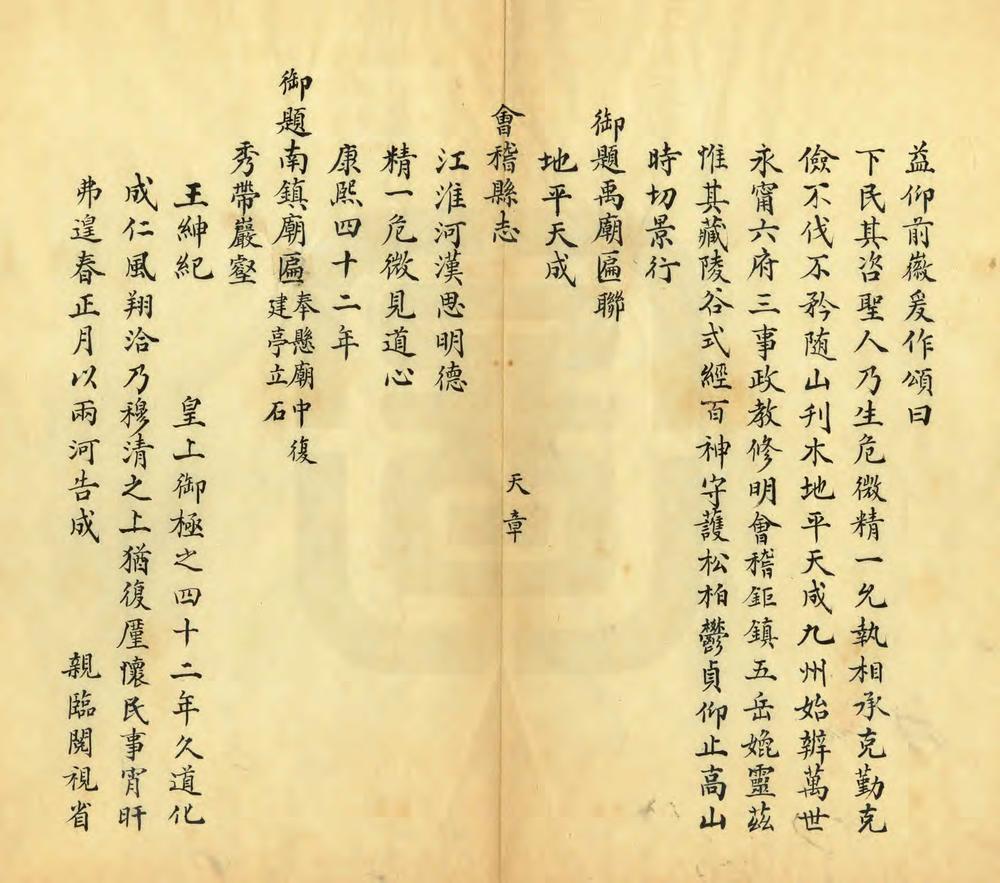 益仰前徽爰作頌曰
下民其咨聖人乃生危微精一允執相承克勤克
儉不伐不矜随山刋木地平天成九州始辨萬世
永甯六府三事政教修明會稽鉅鎮五岳媲靈茲
惟其藏陵谷式經百神守護松柏鬱貞仰止高山
時切景行
御題禹廟匾聯
地平天成
會稽縣志 天章
江淮河漢思明德
精一危微見道心
康熙四十二年
御題南鎮廟匾奉懸廟中復
建亭立石
秀帶巖壑
王紳紀 皇上御極之四十二年久道化
成仁風翔洽乃穆清之上猶復厪懷民事宵旰
弗遑春正月以兩河告成 親臨閱視省